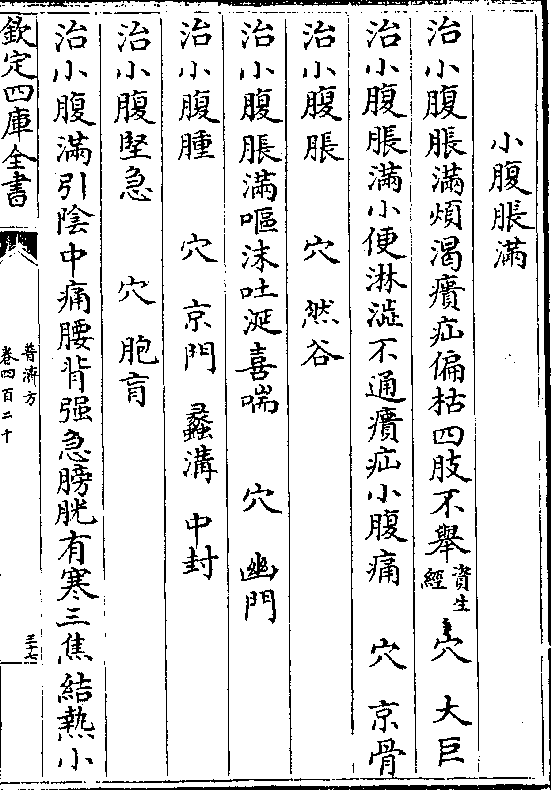 小腹脹滿
治小腹脹滿煩渴㿉疝偏枯四肢不舉資生經穴 大巨
治小腹脹滿小便淋澁不通㿉疝小腹痛 穴 京骨
治小腹脹 穴 然谷
治小腹脹滿嘔沫吐涎喜喘 穴 幽門
治小腹腫 穴 京門 蠡溝 中封
治小腹堅急 穴 胞肓
治小腹滿引陰中痛腰背强急膀胱有寒三焦結熱小
欽定四庫全書
普濟方
卷四百二十
三十七